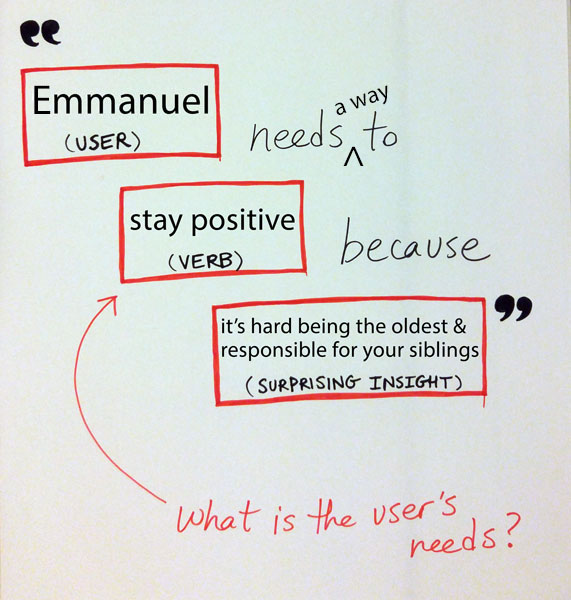 “
Emmanuel
(USER)
needs ^ a way to
stay positive
(VERB)
because
it's hard being the oldest &
responsible for your siblings
”
(SURPRISING INSIGHT)
What is the user's
needs?